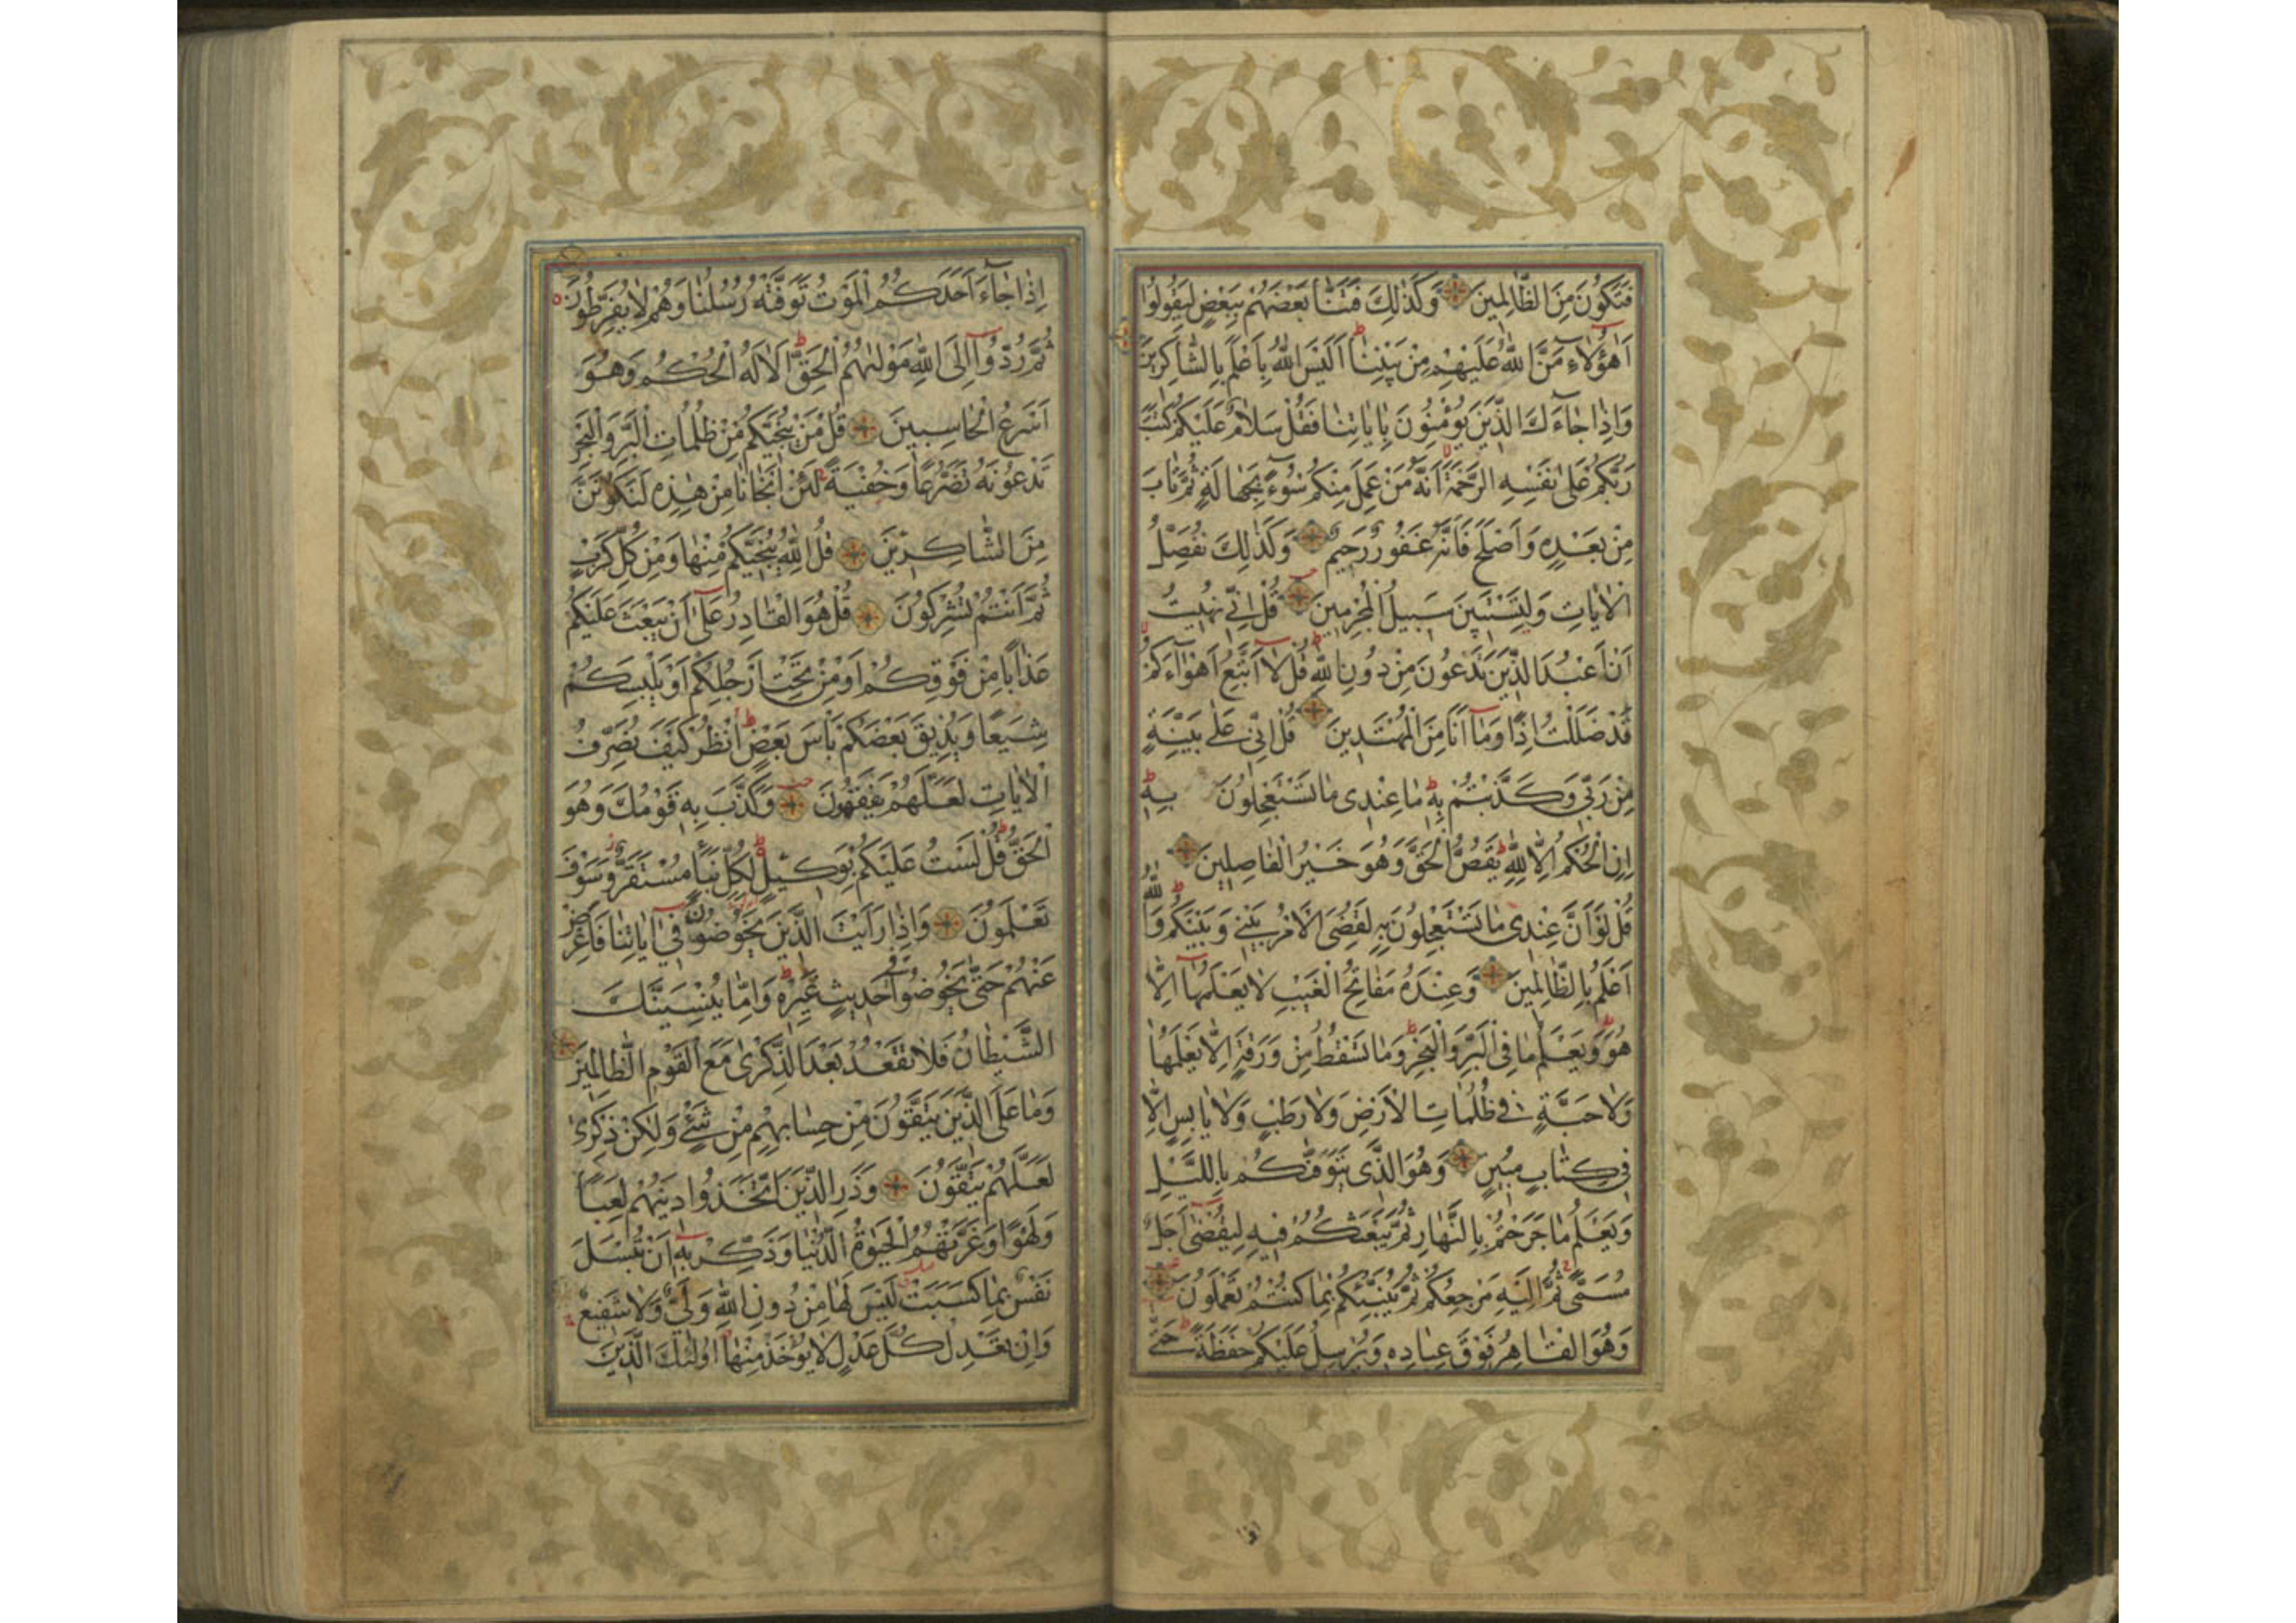 فَتَكُونَ مِنَ الظَّالِمِينَ وَكَذٰلِكَ فَتَنَّا بَعْضَهُمْ بِبَعْضٍ لِيَقُولُوا
اَهٰؤُلَاءِ مَنَّ اللّٰهُ عَلَيْهِمْ مِنْ بَيْنِنَا اَلَيْسَ اللّٰهُ بِاَعْلَمَ بِالشَّاكِرِينَ
وَاِذَا جَاءَكَ الَّذِينَ يُؤْمِنُونَ بِاٰيَاتِنَا فَقُلْ سَلَامٌ عَلَيْكُمْ كَتَبَ
رَبُّكُمْ عَلٰى نَفْسِهِ الرَّحْمَةَ اَنَّهُ مَنْ عَمِلَ مِنْكُمْ سُوءًا بِجَهَالَةٍ ثُمَّ تَابَ
مِنْ بَعْدِهِ وَاَصْلَحَ فَاَنَّهُ غَفُورٌ رَحِيمٌ وَكَذٰلِكَ نُفَصِّلُ
الْاٰيَاتِ وَلِتَسْتَبِينَ سَبِيلُ الْمُجْرِمِينَ قُلْ اِنِّي نُهِيتُ
اَنْ اَعْبُدَ الَّذِينَ تَدْعُونَ مِنْ دُونِ اللّٰهِ قُلْ لَا اَتَّبِعُ اَهْوَاءَكُمْ
قَدْ ضَلَلْتُ اِذًا وَمَا اَنَا مِنَ الْمُهْتَدِينَ قُلْ اِنِّي عَلٰى بَيِّنَةٍ
مِنْ رَبِّي وَكَذَّبْتُمْ بِهِ مَا عِنْدِي مَا تَسْتَعْجِلُونَ بِهِ
اِنِ الْحُكْمُ اِلَّا لِلّٰهِ يَقُصُّ الْحَقَّ وَهُوَ خَيْرُ الْفَاصِلِينَ
قُلْ لَوْ اَنَّ عِنْدِي مَا تَسْتَعْجِلُونَ بِهِ لَقُضِيَ الْاَمْرُ بَيْنِي وَبَيْنَكُمْ وَاللّٰهُ
اَعْلَمُ بِالظَّالِمِينَ وَعِنْدَهُ مَفَاتِحُ الْغَيْبِ لَا يَعْلَمُهَا اِلَّا
هُوَ وَيَعْلَمُ مَا فِي الْبَرِّ وَالْبَحْرِ وَمَا تَسْقُطُ مِنْ وَرَقَةٍ اِلَّا يَعْلَمُهَا
وَلَا حَبَّةٍ فِي ظُلُمَاتِ الْاَرْضِ وَلَا رَطْبٍ وَلَا يَابِسٍ اِلَّا
فِي كِتَابٍ مُبِينٍ وَهُوَ الَّذِي يَتَوَفّٰكُمْ بِاللَّيْلِ
وَيَعْلَمُ مَا جَرَحْتُمْ بِالنَّهَارِ ثُمَّ يَبْعَثُكُمْ فِيهِ لِيُقْضٰى اَجَلٌ
مُسَمًّى ثُمَّ اِلَيْهِ مَرْجِعُكُمْ ثُمَّ يُنَبِّئُكُمْ بِمَا كُنْتُمْ تَعْمَلُونَ
وَهُوَ الْقَاهِرُ فَوْقَ عِبَادِهِ وَيُرْسِلُ عَلَيْكُمْ حَفَظَةً حَتّٰى
اِذَا جَاءَ اَحَدَكُمُ الْمَوْتُ تَوَفَّتْهُ رُسُلُنَا وَهُمْ لَا يُفَرِّطُونَ
ثُمَّ رُدُّوا اِلَى اللّٰهِ مَوْلٰهُمُ الْحَقِّ اَلَا لَهُ الْحُكْمُ وَهُوَ
اَسْرَعُ الْحَاسِبِينَ قُلْ مَنْ يُنَجِّيكُمْ مِنْ ظُلُمَاتِ الْبَرِّ وَالْبَحْرِ
تَدْعُونَهُ تَضَرُّعًا وَخُفْيَةً لَئِنْ اَنْجَانَا مِنْ هٰذِهِ لَنَكُونَنَّ
مِنَ الشَّاكِرِينَ قُلِ اللّٰهُ يُنَجِّيكُمْ مِنْهَا وَمِنْ كُلِّ كَرْبٍ
ثُمَّ اَنْتُمْ تُشْرِكُونَ قُلْ هُوَ الْقَادِرُ عَلٰى اَنْ يَبْعَثَ عَلَيْكُمْ
عَذَابًا مِنْ فَوْقِكُمْ اَوْ مِنْ تَحْتِ اَرْجُلِكُمْ اَوْ يَلْبِسَكُمْ
شِيَعًا وَيُذِيقَ بَعْضَكُمْ بَاْسَ بَعْضٍ اُنْظُرْ كَيْفَ نُصَرِّفُ
الْاٰيَاتِ لَعَلَّهُمْ يَفْقَهُونَ وَكَذَّبَ بِهِ قَوْمُكَ وَهُوَ
الْحَقُّ قُلْ لَسْتُ عَلَيْكُمْ بِوَكِيلٍ لِكُلِّ نَبَاٍ مُسْتَقَرٌّ وَسَوْفَ
تَعْلَمُونَ وَاِذَا رَاَيْتَ الَّذِينَ يَخُوضُونَ فِي اٰيَاتِنَا فَاَعْرِضْ
عَنْهُمْ حَتّٰى يَخُوضُوا فِي حَدِيثٍ غَيْرِهِ وَاِمَّا يُنْسِيَنَّكَ
الشَّيْطَانُ فَلَا تَقْعُدْ بَعْدَ الذِّكْرٰى مَعَ الْقَوْمِ الظَّالِمِينَ
وَمَا عَلَى الَّذِينَ يَتَّقُونَ مِنْ حِسَابِهِمْ مِنْ شَيْءٍ وَلٰكِنْ ذِكْرٰى
لَعَلَّهُمْ يَتَّقُونَ وَذَرِ الَّذِينَ اتَّخَذُوا دِينَهُمْ لَعِبًا
وَلَهْوًا وَغَرَّتْهُمُ الْحَيٰوةُ الدُّنْيَا وَذَكِّرْ بِهِ اَنْ تُبْسَلَ
نَفْسٌ بِمَا كَسَبَتْ لَيْسَ لَهَا مِنْ دُونِ اللّٰهِ وَلِيٌّ وَلَا شَفِيعٌ
وَاِنْ تَعْدِلْ كُلَّ عَدْلٍ لَا يُؤْخَذْ مِنْهَا اُولٰئِكَ الَّذِينَ